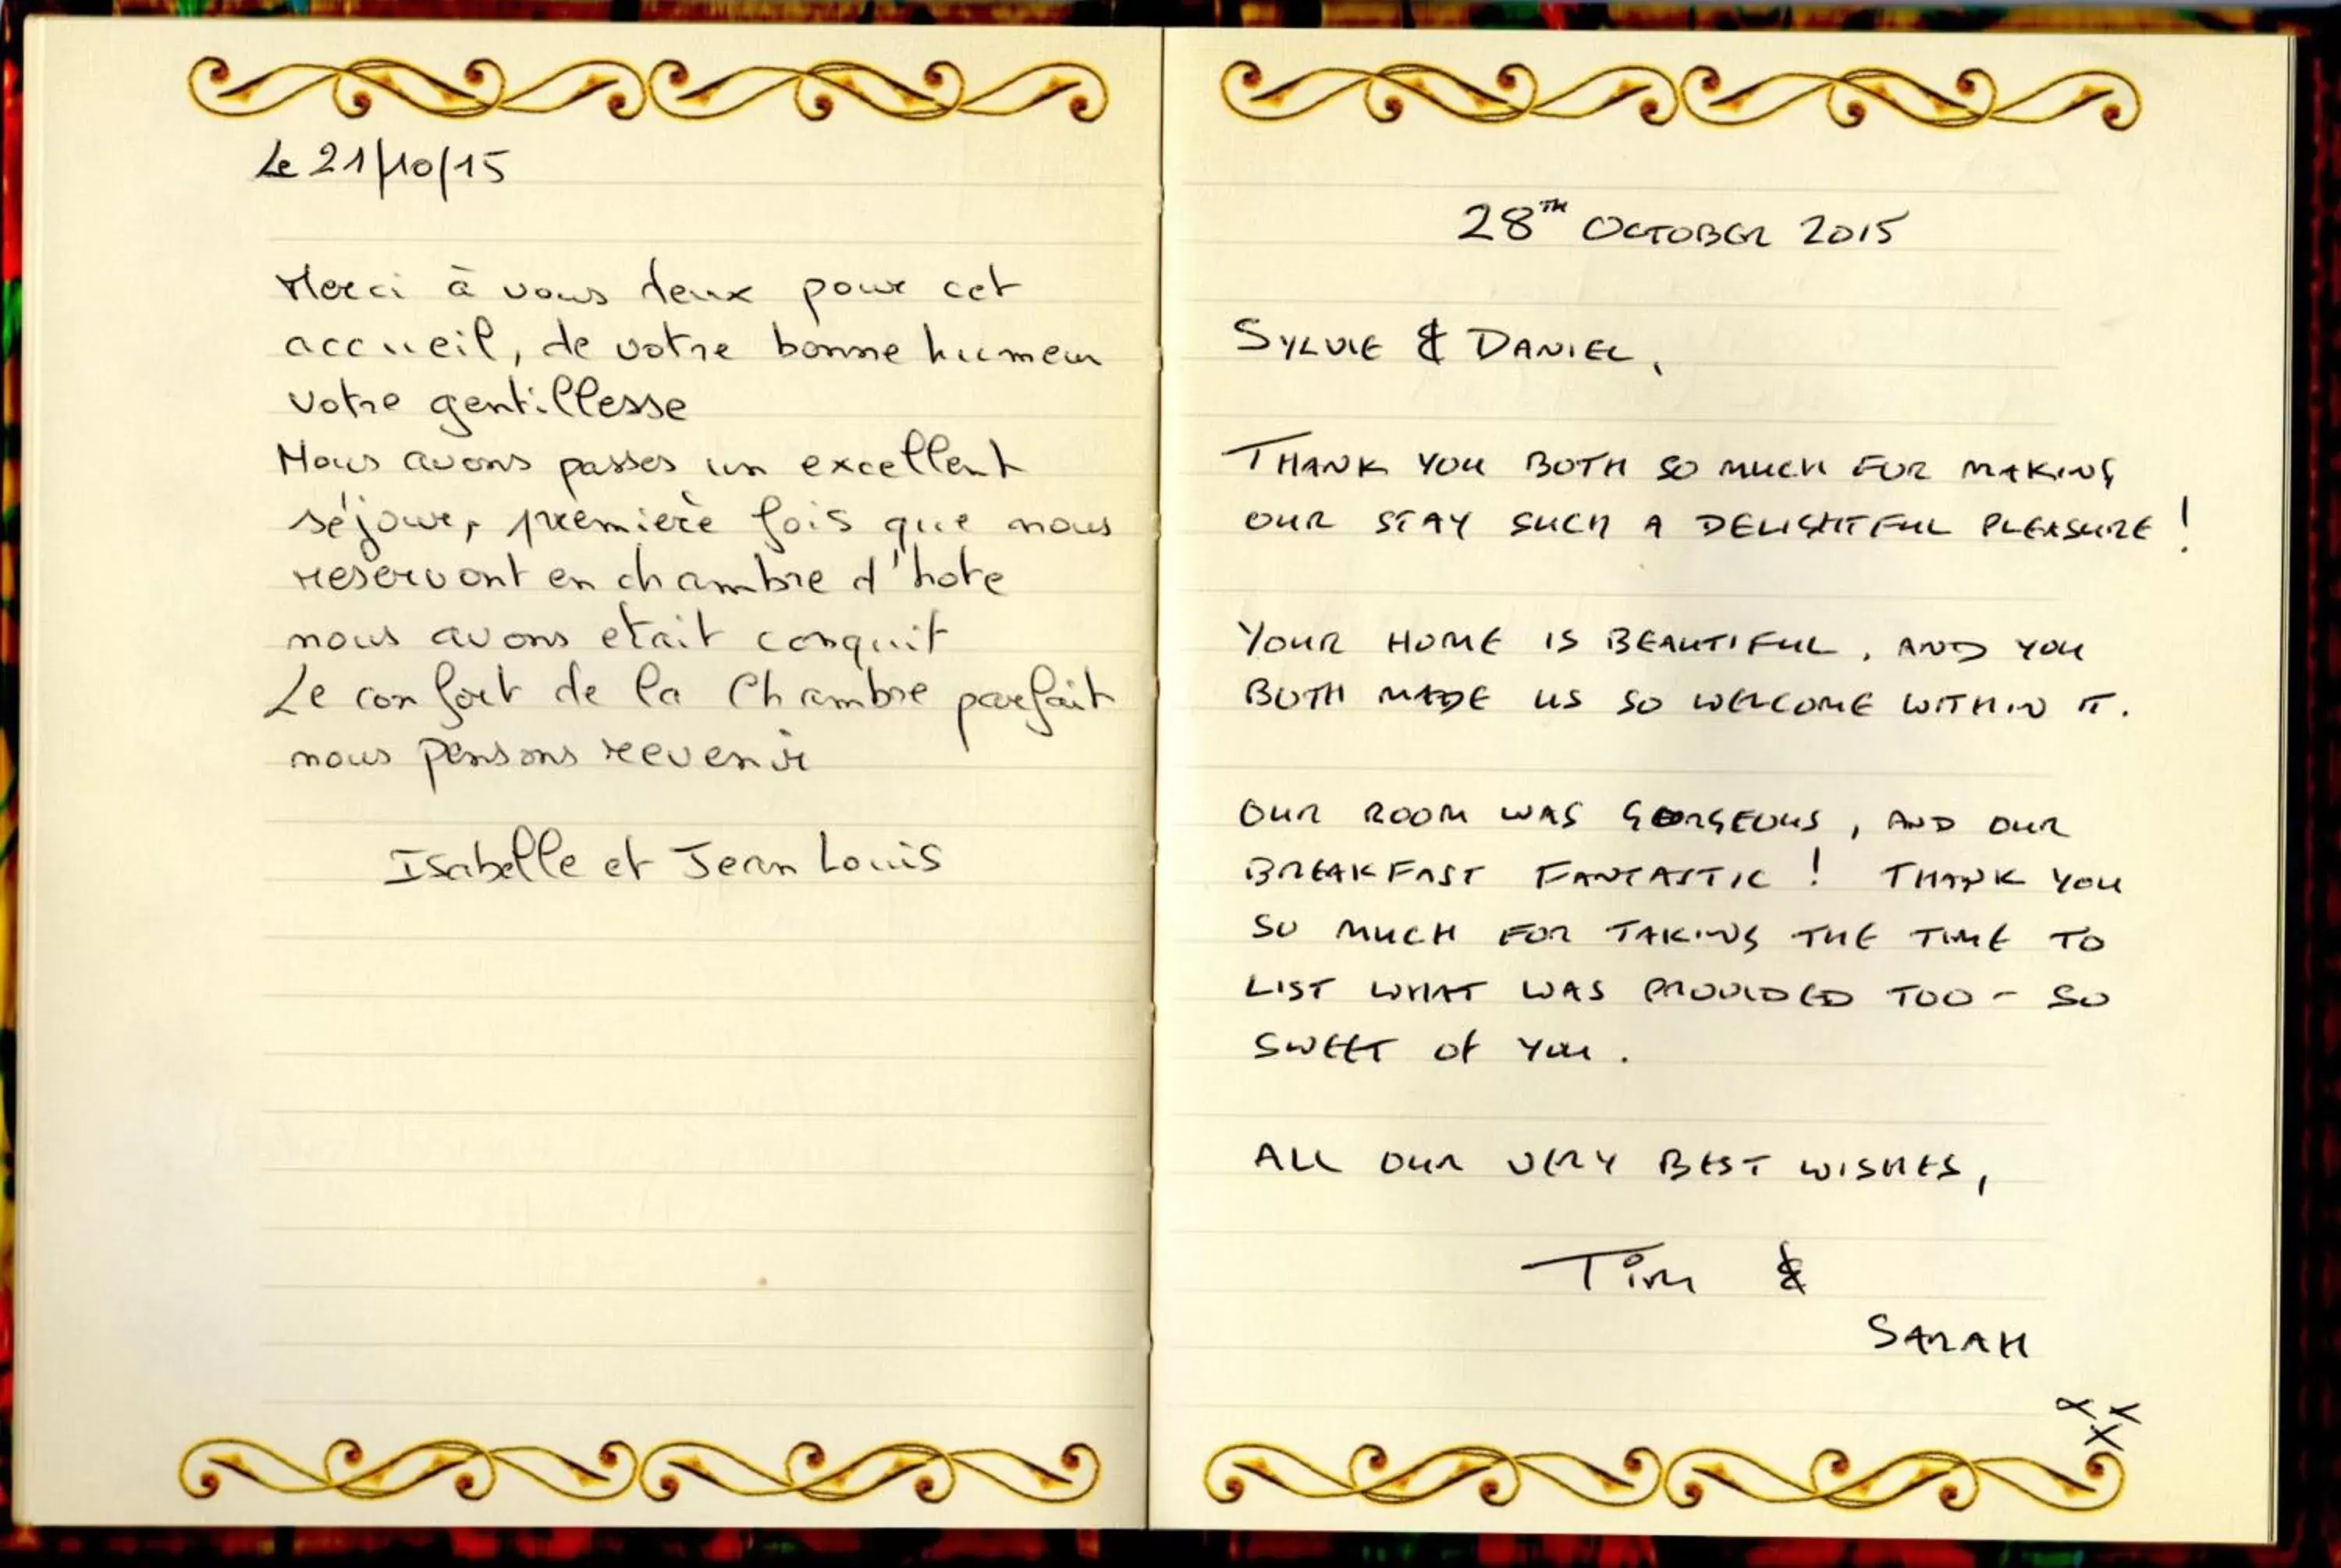 Le 21/10/15
Merci à vous deux pour cet
accueil, de votre bonne humeur
votre gentillesse
Nous avons passes un excellent
séjour, première fois que nous
reservont en chambre d'hote
nous avons etait conquit
Le confort de la Chambre parfait
nous pensons revenir
Isabelle et Jean Louis
28TH OCTOBER 2015
SYLVIE & DANIEL,
THANK YOU BOTH SO MUCH FOR MAKING
OUR STAY SUCH A DELIGHTFUL PLEASURE!
YOUR HOME IS BEAUTIFUL, AND YOU
BOTH MADE US SO WELCOME WITHIN IT.
OUR ROOM WAS GORGEOUS, AND OUR
BREAKFAST FANTASTIC! THANK YOU
SO MUCH FOR TAKING THE TIME TO
LIST WHAT WAS PROVIDED TOO - SO
SWEET of YOU.
ALL OUR VERY BEST WISHES,
Tim &
SARAH
x x
x